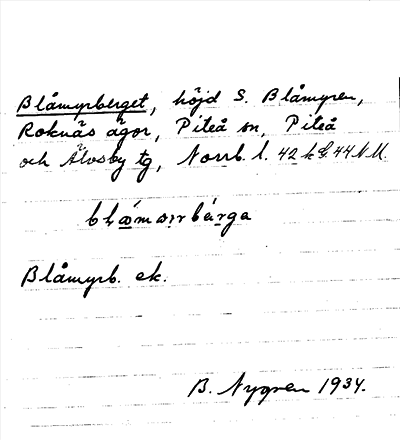 Blåmyrberget, höjd S. Blåmyren,
Roknäs ägor, Piteå sn, Piteå
och Älvsby tg, Norrb. l. 42 k 44
Blåmyrb. ek.
B. Nygren 1934.